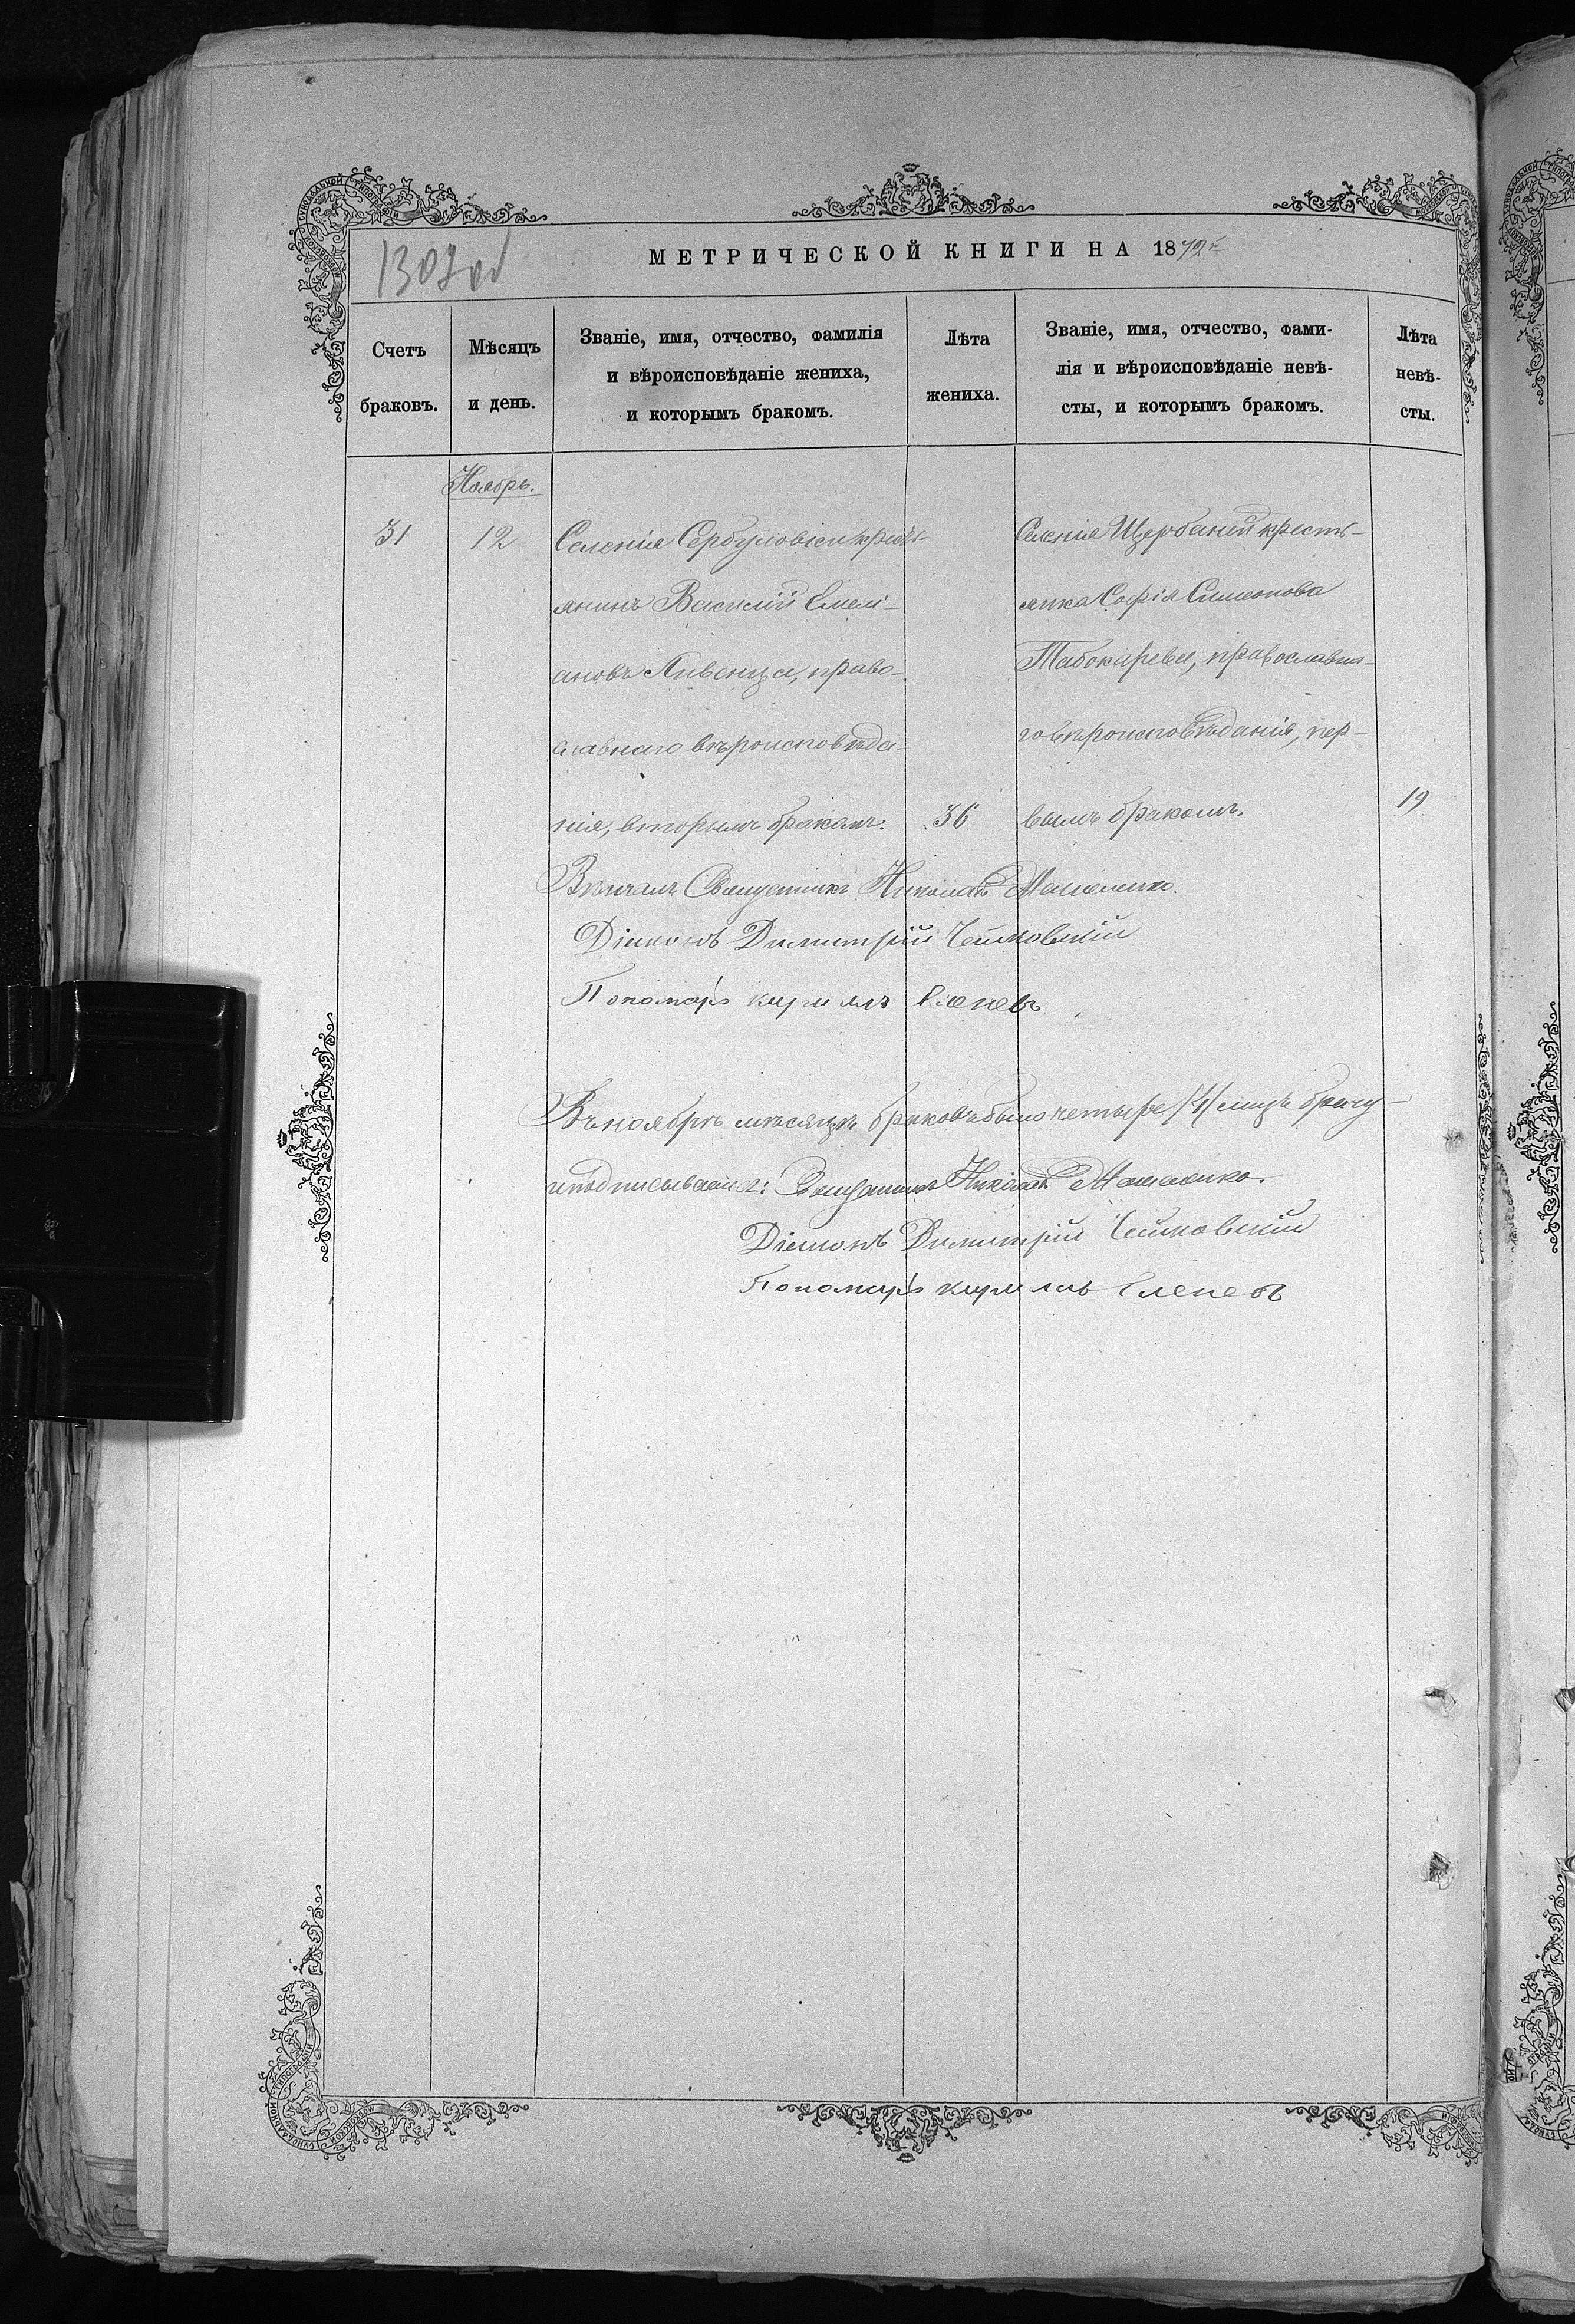 МЕТРИЧЕСКОЙ КНИГИ НА 1872
Счетъ браковъ.
Мѣсяцъ и день.
Званіе, имя, отчество, фамилія
и вѣроисповѣданіе жениха,
и которымъ бракомъ.
Лѣта жениха.
Званіе, имя, отчество, фами-
лія и вѣроисповѣданіе невѣ-
сты, и которымъ бракомъ.
Лѣта невѣ-
сты.
Ноябрь.
31
12
Селенія крестъ-
янинъ Василій Емелі-
ановъ право-
славнаго вѣроисповѣда-
нія, вторымъ бракомъ.
36
Селенія Щербаней кресть-
янка Софія Симеонова
православна-
го вѣроисповѣданія, пер-
вымъ бракомъ.
19
Вѣнчалъ Священникъ Николай
Діаконъ Димитрій
Пономарь Кирилъ
Въ ноябрѣ мѣсяцѣ браковъ было четыре /4/
Священникъ Николай
Діаконъ Димитрій
Пономарь Кирилъ